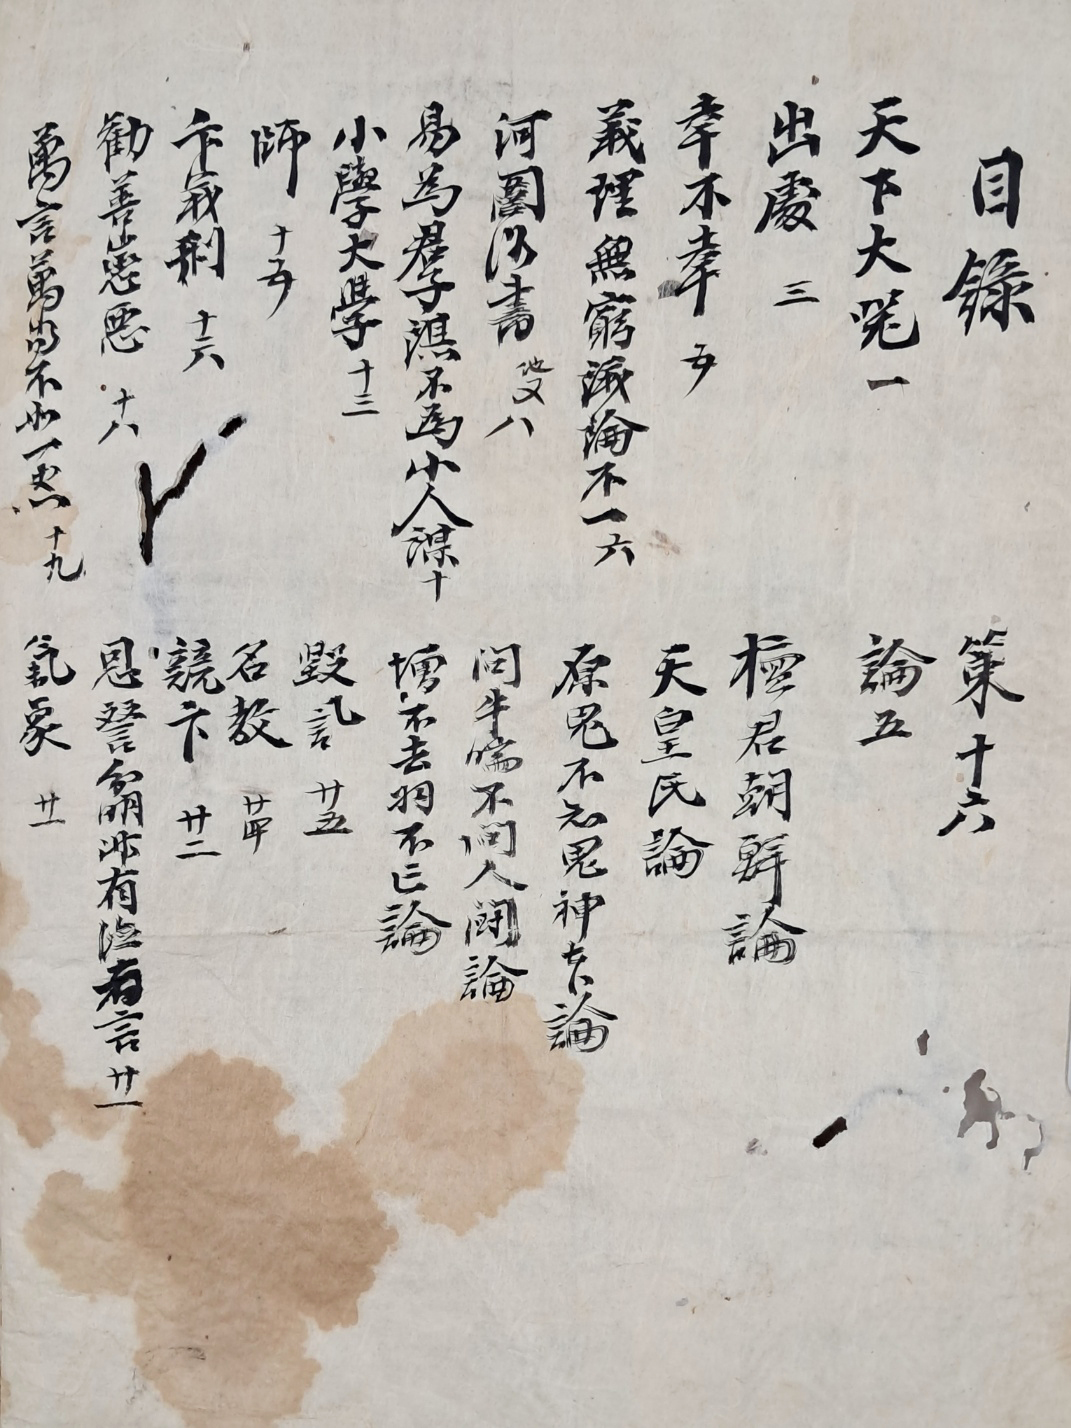 目錄
天下大勢一
出處 三
幸不幸 五
義理無窮議論不一 六
河圖洛書 八
易為君子謀不為小人謀 十
小學大學 十三
師 十五
十六
勸善懲惡 十八
萬言萬當不如一黙 十九
策十六
論五
檀君朝鮮論
天皇氏論
原鬼不 鬼神 論
問牛喘不問人鬪論
增不去羽不亡論
毀 廿五
名敎 廿四
競 廿二
有 有言 廿一
氣象 廿